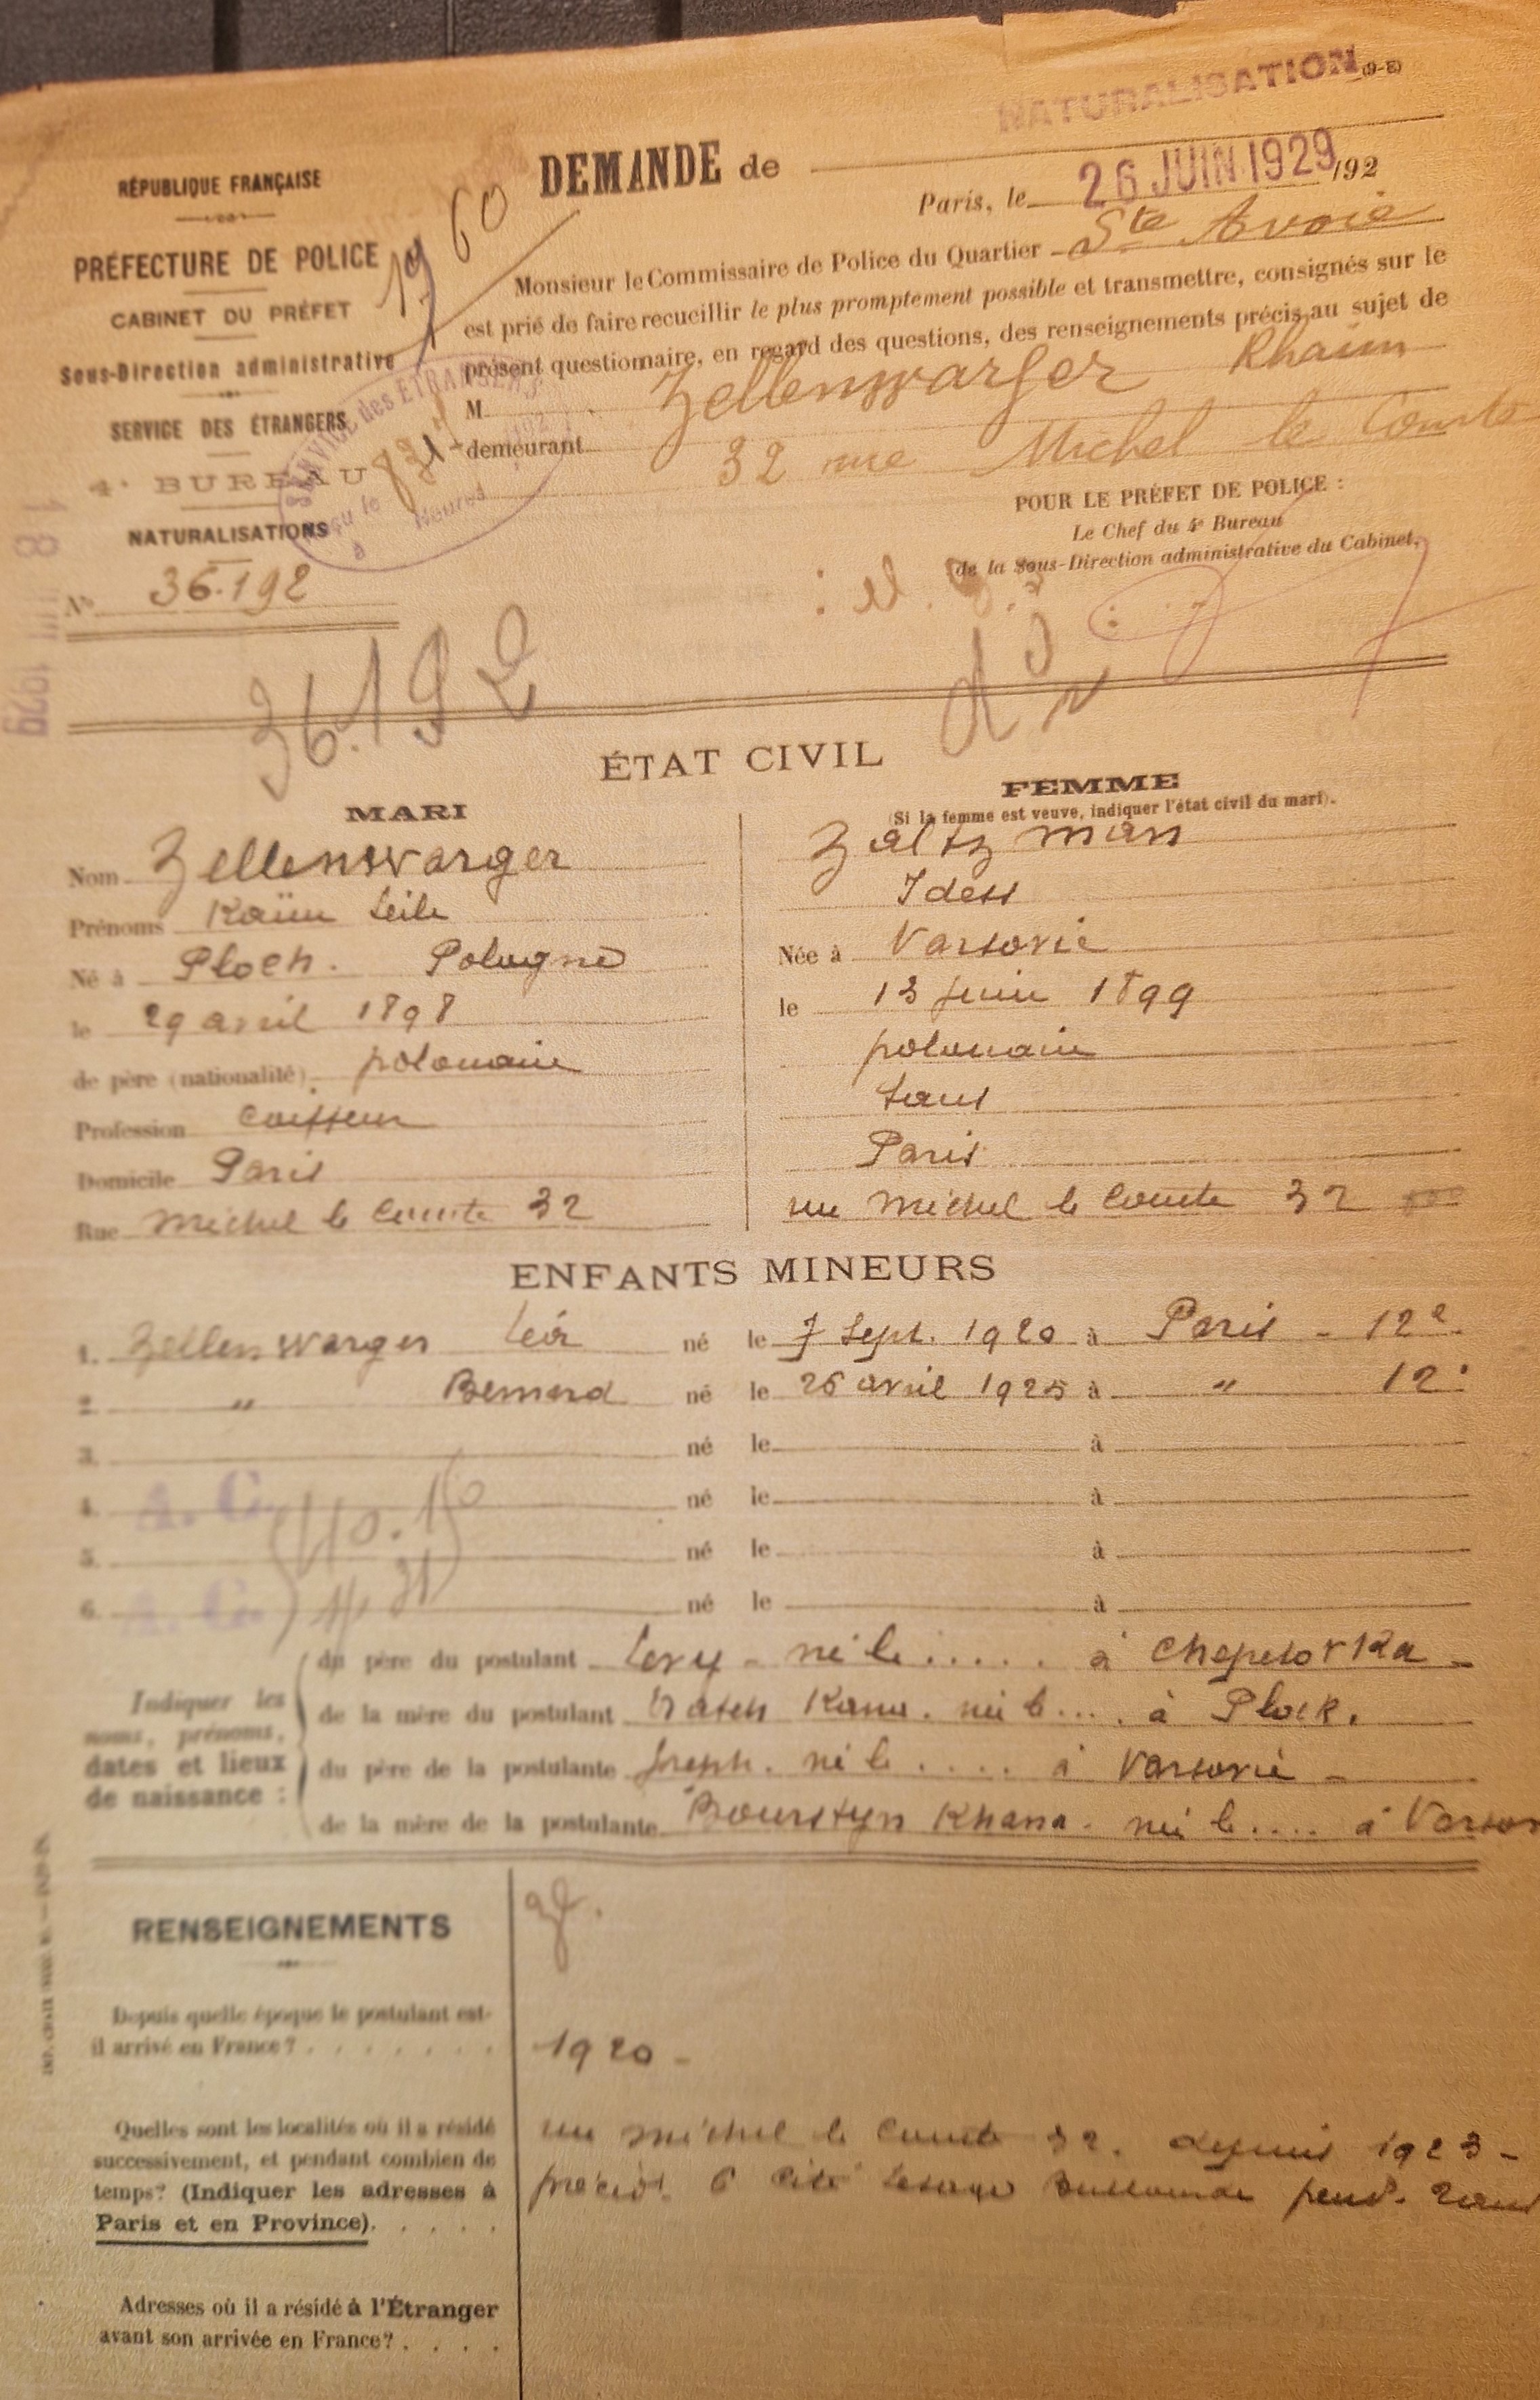 NATURALISATION (9-E)
DEMANDE de
RÉPUBLIQUE FRANÇAISE
PRÉFECTURE DE POLICE
CABINET DU PRÉFET
Sous-Direction administrative
SERVICE DES ÉTRANGERS
4e BUREAU
NATURALISATIONS
No 36.192
SERVICE des ETRANGERS
Reçu le
à Heures
18 JUIL 1929
Paris, le 26 JUIN 1929 192
Monsieur le Commissaire de Police du Quartier Ste Avoie
est prié de faire recueillir le plus promptement possible et transmettre, consignés sur le
présent questionnaire, en regard des questions, des renseignements précis au sujet de
M Zellenwarger Khaim
demeurant 32 rue Michel le Comte
POUR LE PRÉFET DE POLICE :
Le Chef du 4e Bureau
de la Sous-Direction administrative du Cabinet,
36.192
ÉTAT CIVIL
MARI
Nom Zellenwarger
Prénoms Kaïm Leib
Né à Ploch. Pologne
le 29 avril 1898
de père (nationalité) polonaise
Profession Coiffeur
Domicile Paris
Rue Michel le Comte 32
FEMME
(Si la femme est veuve, indiquer l'état civil du mari).
Zaltzman
Idess
Née à Varsovie
le 13 juin 1899
polonaise
Sans
Paris
rue Michel le Comte 32
ENFANTS MINEURS
1. Zellenwarger Léa né le 7 Sept. 1920 à Paris - 12e
2. " Bernard né le 26 avril 1925 à " 12e
3. né le à
4. né le à
5. né le à
6. né le à
A. C.
A. C.
Indiquer les
noms, prénoms,
dates et lieux
de naissance :
du père du postulant Levy - né le ..... à Chepetovka -
de la mère du postulant Kana. née le .... à Plock.
du père de la postulante Joseph. né le ..... à Varsovie -
de la mère de la postulante Bourstyn Khana. née le .... à
RENSEIGNEMENTS
Depuis quelle époque le postulant est-
il arrivé en France ? . . . . . . .
1920 -
Quelles sont les localités où il a résidé
successivement, et pendant combien de
temps? (Indiquer les adresses à
Paris et en Province). . . . .
rue Michel le Comte 32. depuis 1923 -
précédt. 6 Cité Lesage Bullourde pendt.
Adresses où il a résidé à l'Étranger
avant son arrivée en France ? . . . .